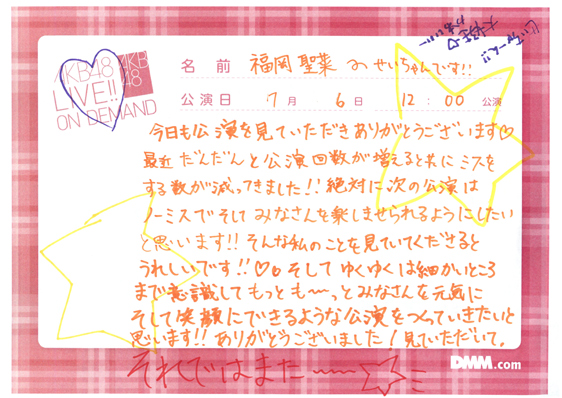 AKB48
LIVE!!
ON DEMAND
AKB
48
名前 福岡聖菜 のせいちゃんです!!
公演日 7月 6日 12:00 公演
今日も公演を見ていただきありがとうございます♡
最近だんだんと公演回数が増えると共にミスを
する数が減ってきました!! 絶対に次の公演は
ノーミスでそしてみなさんを楽しませられるようにしたい
と思います!! そんな私のことを見ていてくださると
うれしいです!!♡。そしてゆくゆくは細かいところ
まで意識してもっとも〜っとみなさんを元気に
そして笑顔にできるような公演をつくっていきたいと
思います!! ありがとうございました!見ていただいて。
それではまた〜〜☆ミ
DMM.com